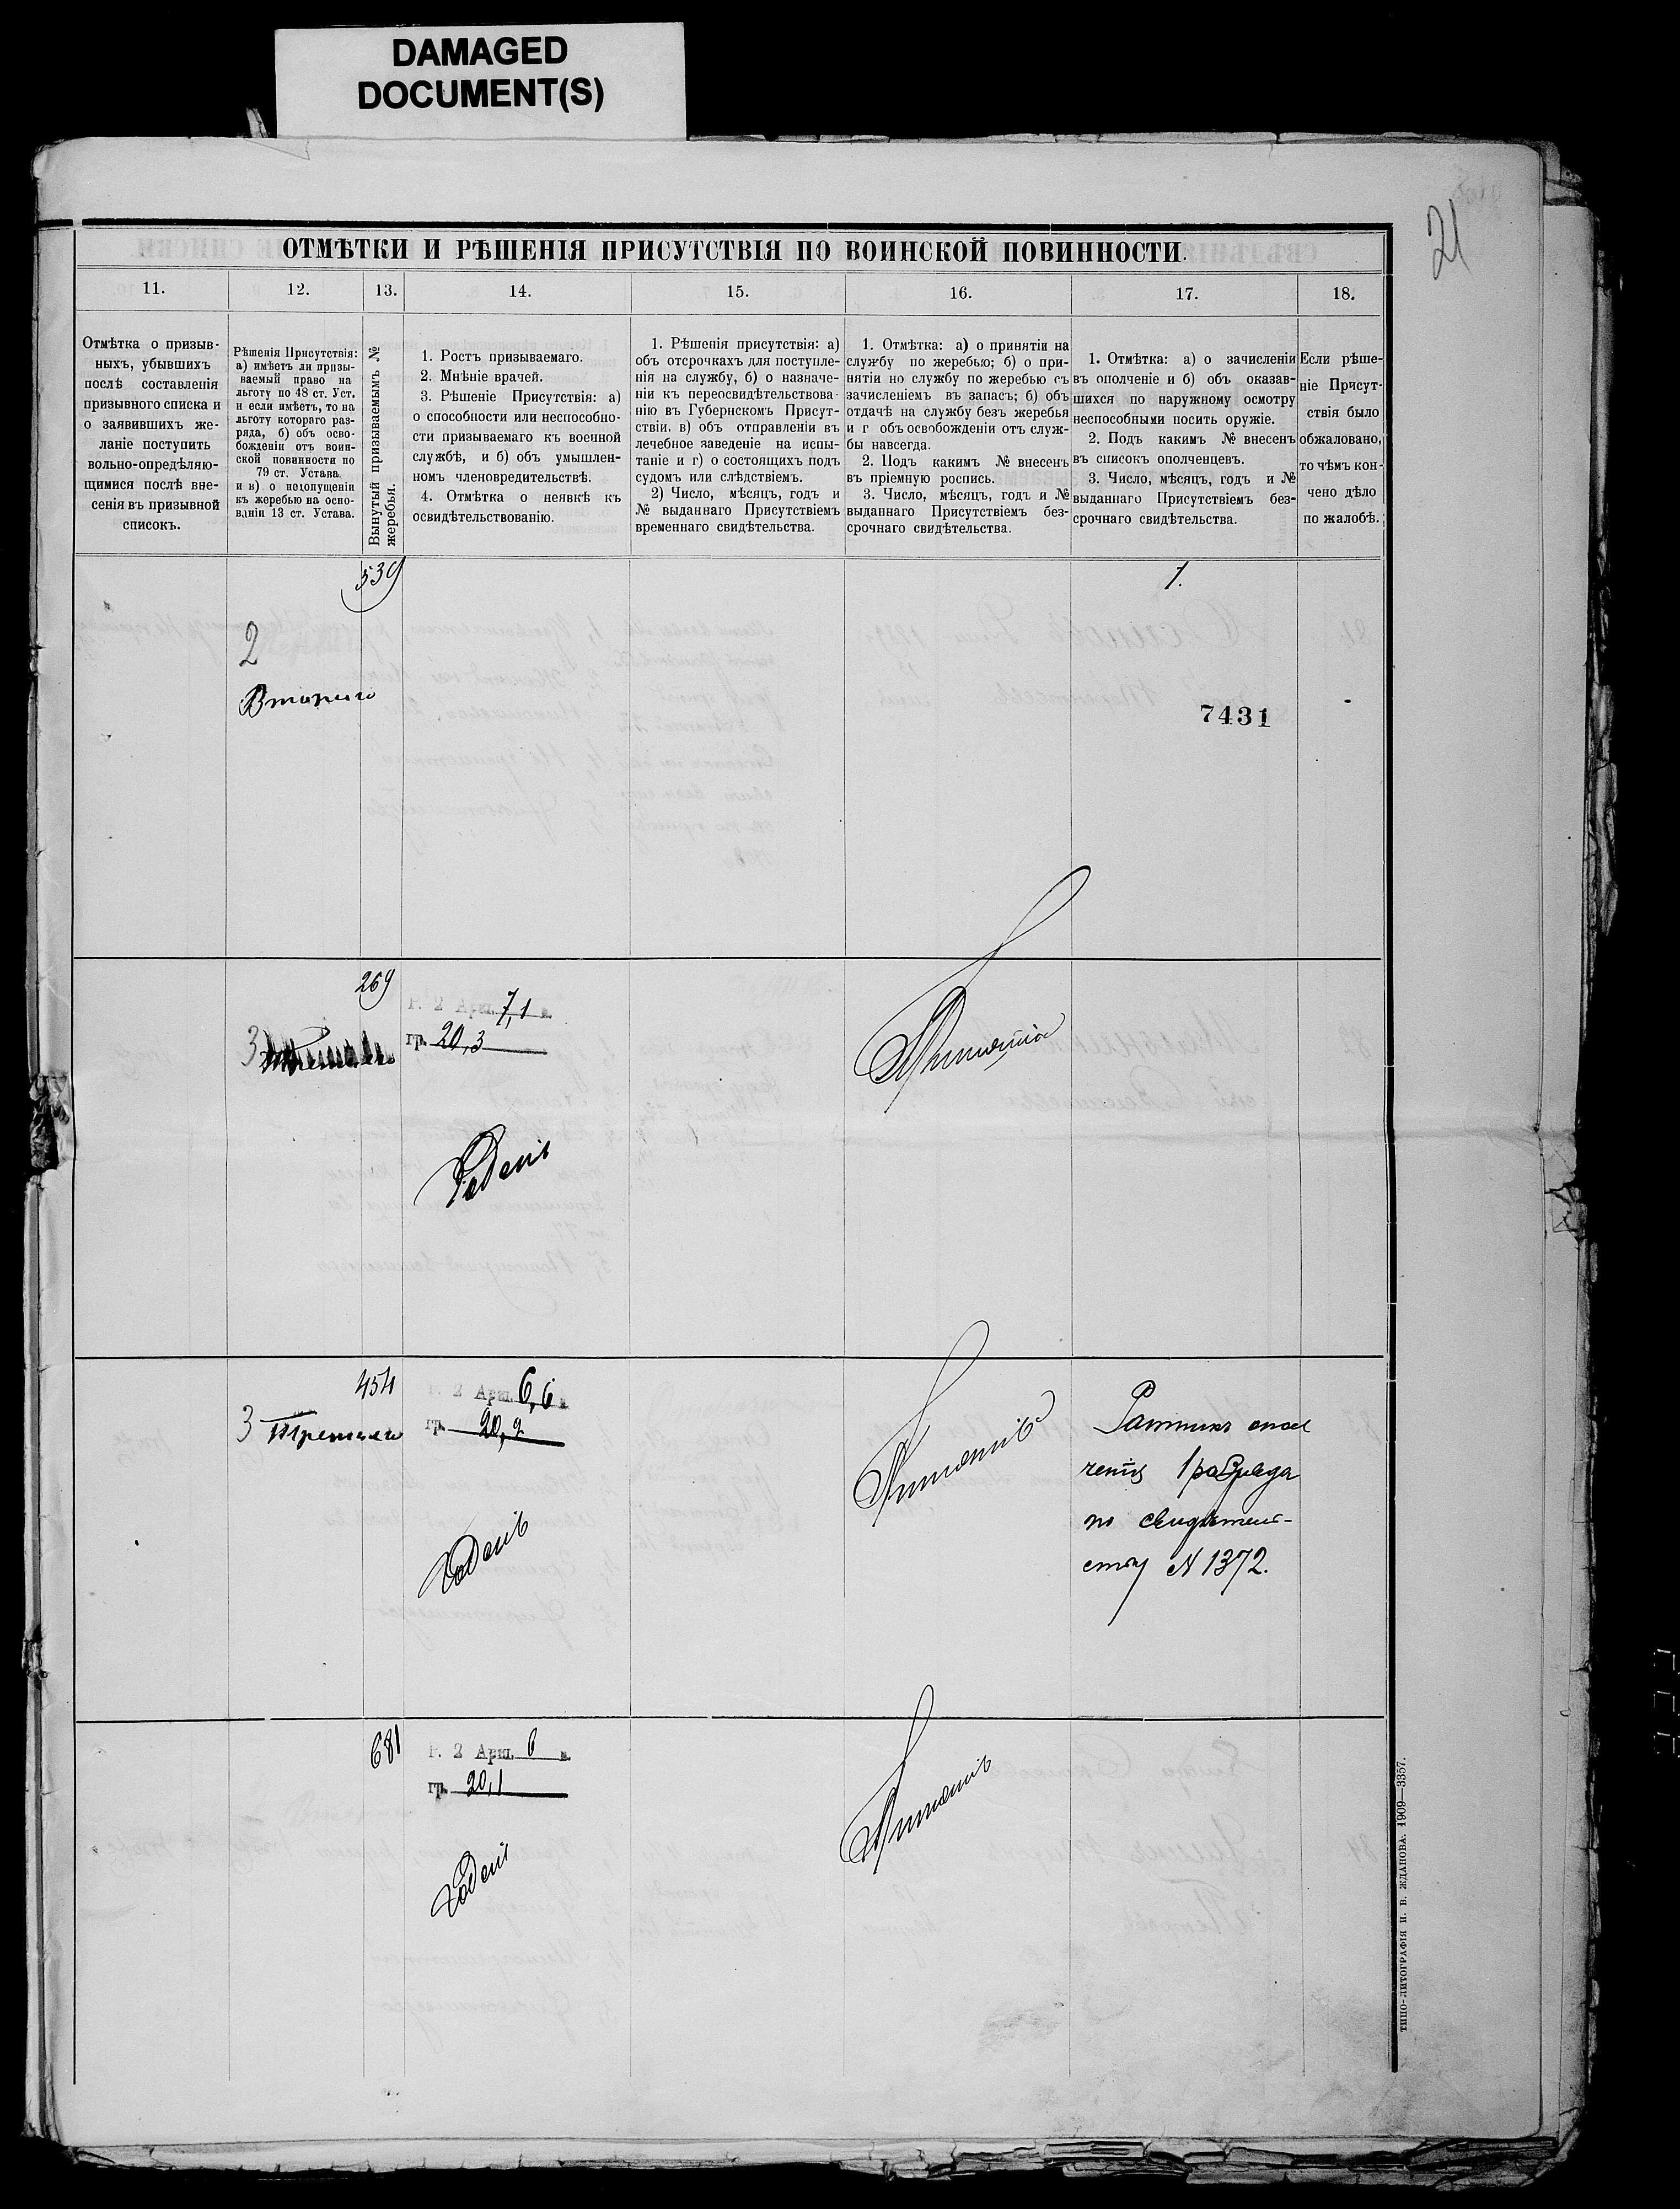 DAMAGED
DOCUMENT(S)
21
ОТМѢТКИ И РѢШЕНІЯ ПРИСУТСТВІЯ ПО ВОИНСКОЙ ПОВИННОСТИ.
11.
12.
13.
14.
15.
16.
17.
18.
Отмѣтка о призыв-
ныхъ, убывшихъ
послѣ составленія
призывного списка и
о заявившихъ же-
ланіе поступить
вольно-опредѣляю-
щимися послѣ вне-
сенія въ призывной
списокъ.
Рѣшенія Присутствія:
а) имѣетъ ли призы-
ваемый право на
льготу по 48 ст. Уст.
и если имѣетъ, то на
льготу котораго раз-
ряда, б) объ осво-
божденіи отъ воин-
ской повинности по
79 ст. Устава.
и в) о недопущеніи
къ жеребью на осно-
ваніи 13 ст. Устава.
Вынутый призываемымъ №
жеребья.
1. Ростъ призываемаго.
2. Мнѣніе врачей.
3. Рѣшеніе Присутствія: а)
о способности или неспособно-
сти призываемаго къ военной
службѣ, и б) объ умышлен-
номъ членовредительствѣ.
4. Отмѣтка о неявкѣ къ
освидѣтельствованію.
1. Рѣшенія присутствія: а)
объ отсрочкахъ для поступле-
нія на службу, б) о назначе-
ніи къ переосвидѣтельствова-
нію въ Губернскомъ Присут-
ствіи, в) объ отправленіи въ
лечебное заведеніе на испы-
таніе и г) о состоящихъ подъ
судомъ или слѣдствіемъ.
2) Число, мѣсяцъ, годъ и
№ выданнаго Присутствіемъ
временнаго свидѣтельства.
1. Отмѣтка: а) о принятіи на
службу по жеребью; б) о при-
нятіи но службу по жеребью съ
зачисленіемъ въ запасъ; б) объ
отдачѣ на службу безъ жеребья
и г объ освобожденіи отъ служ-
бы навсегда.
2. Подъ какимъ № внесенъ
въ пріемную роспись.
3. Число, мѣсяцъ, годъ и №
выданнаго Присутствіемъ без-
срочнаго свидѣтельства.
1. Отмѣтка: а) о зачисленіи
въ ополченіе и б) объ оказав-
шихся по наружному осмотру
неспособными носить оружіе.
2. Подъ какимъ № внесенъ
въ списокъ ополченцевъ.
3. Число, мѣсяцъ, годъ и №
выданнаго Присутствіемъ без-
срочнаго свидѣтельства.
Если рѣше-
ніе Присут-
ствія было
обжаловано,
то чѣмъ кон-
чено дѣло
по жалобѣ.
539
1.
2
Второго
7431
269
Р. 2 Арш. 7,1 в.
гр. 20,3
3 Третьяго
Принятъ
Годенъ
454
Р. 2 Арш. 6,6 в.
гр. 20,2
3 Третьяго
Принятъ
Годенъ
Ратникъ опол
ченія 1 разряда
по свидѣтель-
ству № 1372.
681
Р. 2 Арш. 6 в.
гр. 20,1
Принятъ
Годенъ
ТИПО-ЛИТОГРАФІЯ И. В. ЖДАНОВА. 1909—3357.